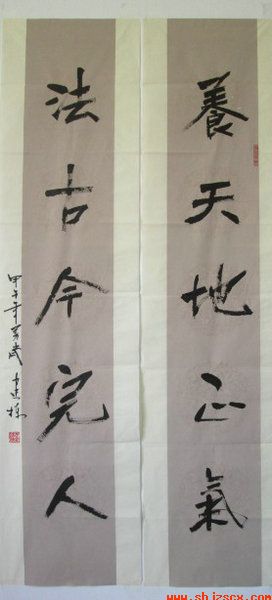 養天地正氣
法古今完人
甲午年
www.shjzscx.com